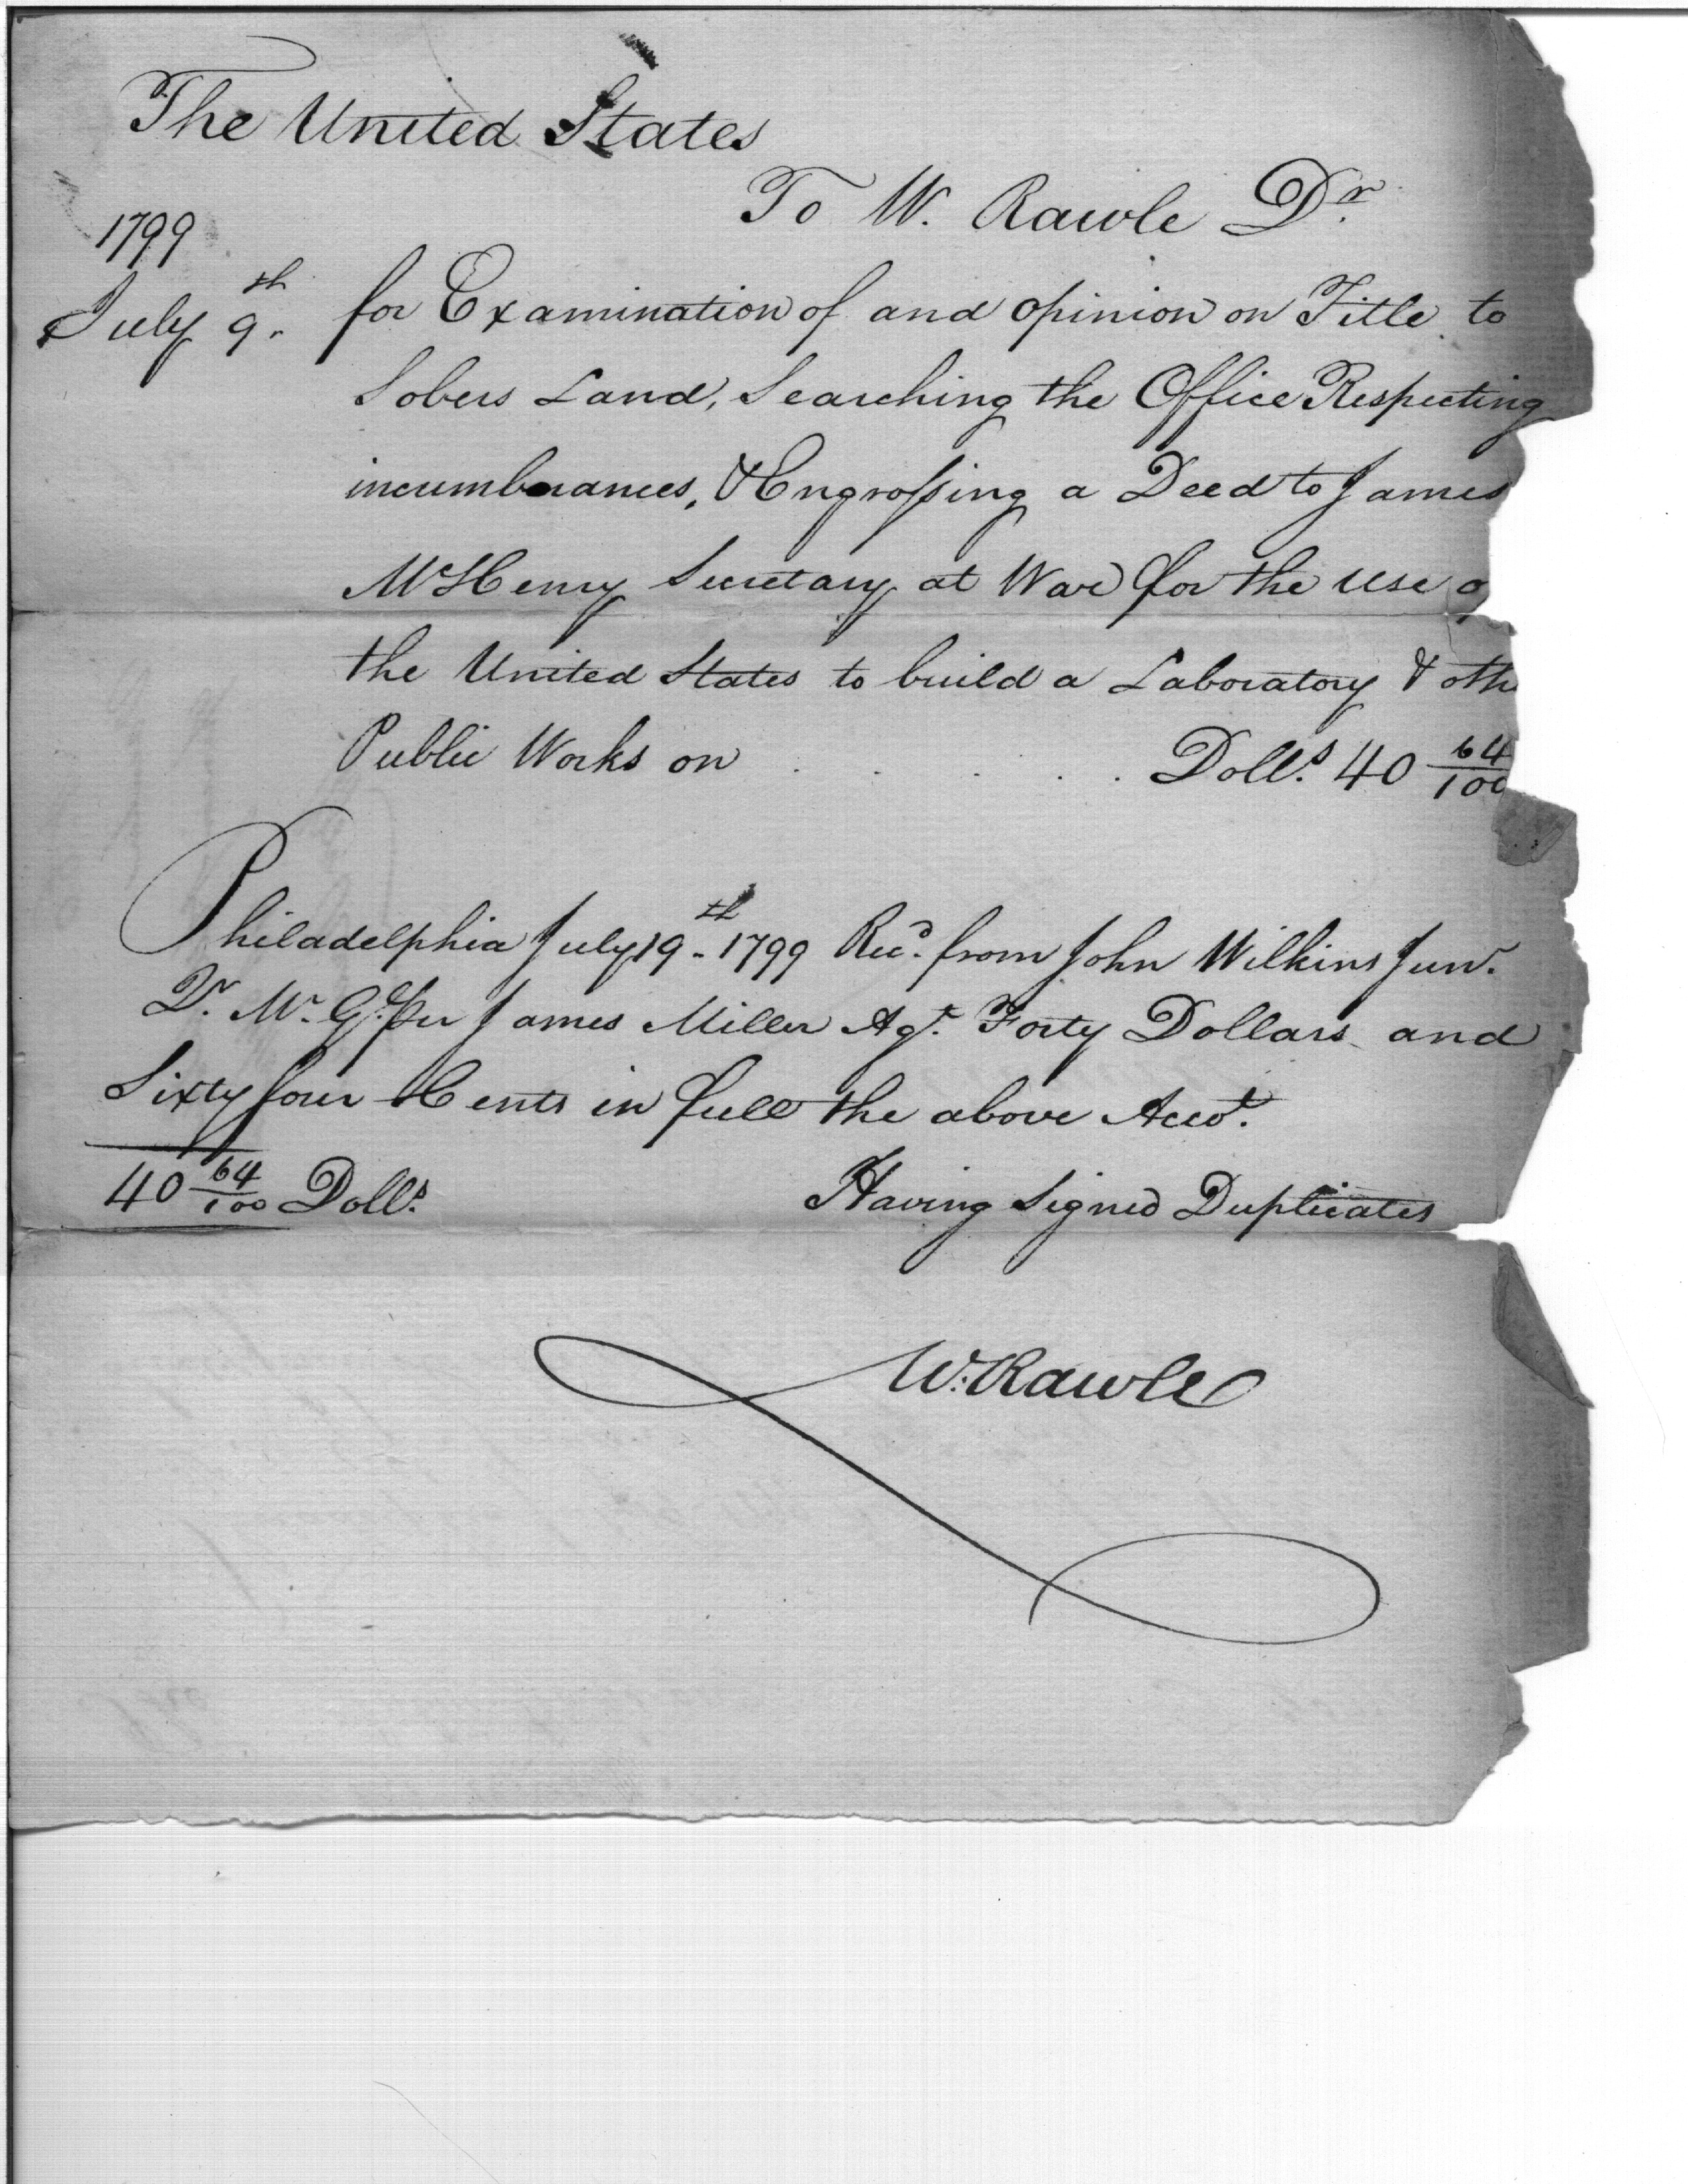 The United States
To W. Rawle Dr.
1799
July 9th for Examination of and opinion on Title to
Sobers Land, Searching the Office Respecting
incumberances, & Engrossing a Deed to James
McHenry Secretary at War for the use o
the United States to build a Laboratory & othe
Public Works on . . . . . Dolls. 40 64/100
Philadelphia July 19th 1799 Recd. from John Wilkins Junr.
Qr. Mr. Gl. per James Miller Agt. Forty Dollars and
Sixty four Cents in full the above Accot.
40 64/100 Dolls.
Having Signed Duplicates
W. Rawle